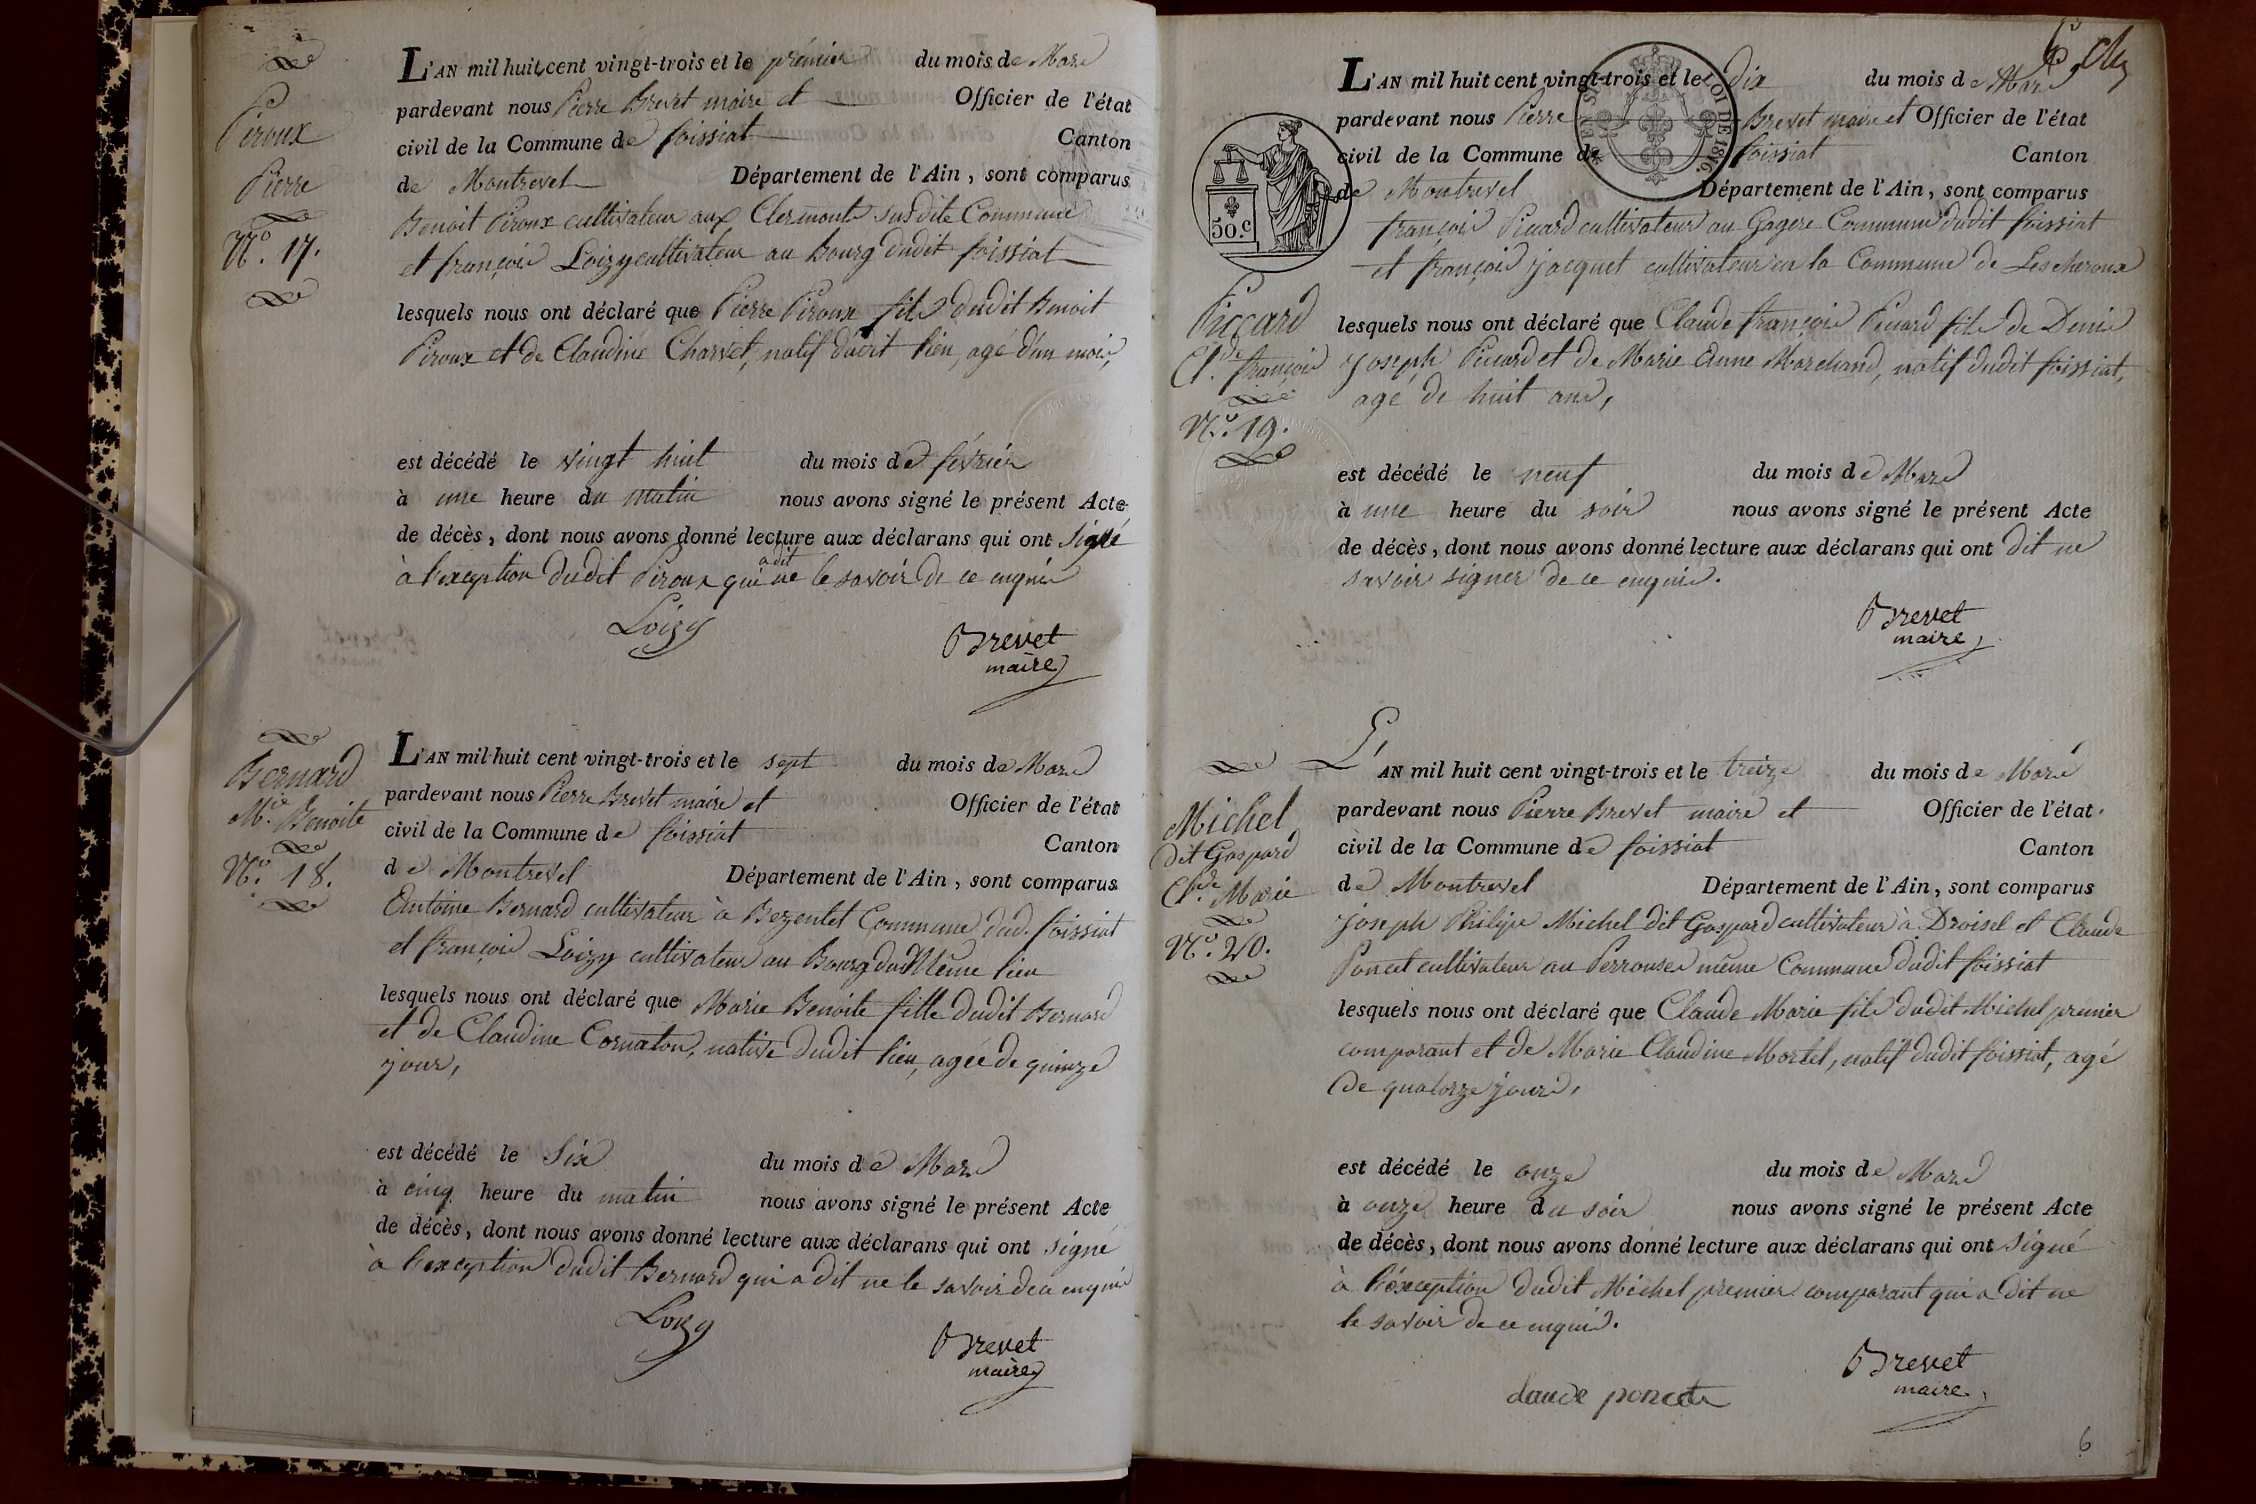 Piroux
Pierre
N.o 17.
L'AN mil huit cent vingt-trois et le prémier du mois de Mars
pardevant nous Pierre Brevet maire et Officier de l'état
civil de la Commune de foissiat Canton
de Montrevel Département de l'Ain, sont comparus
Benoit Piroux cultivateur aux Clermonts susdite Commune
et françois Loizy cultivateur au Bourg dudit foissiat
lesquels nous ont déclaré que Pierre Piroux fils dudit Benoit
Piroux et de Claudine Charvet, natif dudit lieu, agé d'un mois,
est décédé le vingt huit du mois de février
à une heure du matin nous avons signé le présent Acte
de décès, dont nous avons donné lecture aux déclarans qui ont signé
à l'exception dudit Piroux qui a dit ne le savoir de ce enquis
Loizy
Brevet
maire
Bernard
M.ie Benoite
N.o 18.
L'AN mil huit cent vingt-trois et le sept du mois de Mars
pardevant nous Pierre Brevet maire et Officier de l'état
civil de la Commune de foissiat Canton
de Montrevel Département de l'Ain, sont comparus
Antoine Bernard cultivateur à Bezentet Commune dud. foissiat
et françois Loizy cultivateur au Bourg du Même lieu
lesquels nous ont déclaré que Marie Benoite fille dudit Bernard
et de Claudine Cornaton, native dudit lieu, agée de quinze
jour,
est décédé le Six du mois de Mars
à cinq heure du matin nous avons signé le présent Acte
de décès, dont nous avons donné lecture aux déclarans qui ont signé
à l'exception dudit Bernard qui a dit ne le savoir de ce enquis
Loizy
Brevet
maire
6
LOI DE 1816.
50.c
Piccard
Cl.de françois
N.o 19.
L'AN mil huit cent vingt-trois et le Dix du mois de Mars
pardevant nous Pierre Brevet maire et Officier de l'état
civil de la Commune de foissiat Canton
de Montrevel Département de l'Ain, sont comparus
françois Picard cultivateur au Gagere Commune dudit foissiat
et françois jacquet cultivateur en la Commune de Lescheroux
lesquels nous ont déclaré que Claude françois Picard fils de Denis
Joseph Picard et de Marie Anne Marchand, natif dudit foissiat,
agé de huit ans,
est décédé le neuf du mois de Mars
à une heure du soir nous avons signé le présent Acte
de décès, dont nous avons donné lecture aux déclarans qui ont dit ne
savoir signer de ce enquis.
Brevet
maire
Michel
dit Gaspard
Cl.de Marie
N.o 20.
L'AN mil huit cent vingt-trois et le treize du mois de Mars
pardevant nous Pierre Brevet maire et Officier de l'état
civil de la Commune de foissiat Canton
de Montrevel Département de l'Ain, sont comparus
joseph Philipe Michel dit Gaspard cultivateur à Droisel et Claude
Poncet cultivateur au Perrouse même Commune dudit foissiat
lesquels nous ont déclaré que Claude Marie fils dudit Michel prémier
comparant et de Marie Claudine Mortel, natif dudit foissiat, agé
de quatorze jours,
est décédé le onze du mois de Mars
à onze heure du soir nous avons signé le présent Acte
de décès, dont nous avons donné lecture aux déclarans qui ont signé
à l'éxception dudit Michel premier comparant qui a dit ne
le savoir de ce enquis.
Claude poncet
Brevet
maire
6